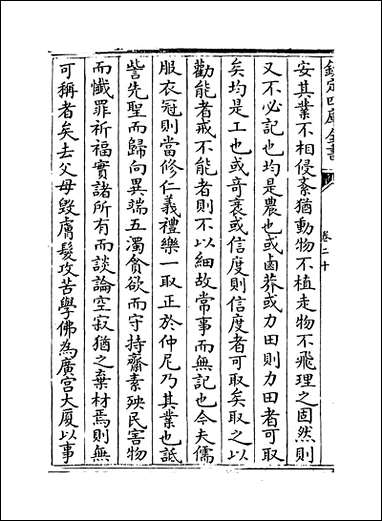 欽定四庫全書
卷二十
安其業不相侵紊猶動物不植走物不飛理之固然則
又不必記也均是農也或鹵莽或力田則力田者可取
矣均是工也或奇衺或信度則信度者可取矣取之以
勸能者戒不能者則不以細故常事而無記也今夫儒
服衣冠則當修仁義禮樂一取正於仲尼乃其業也詆
訾先聖而歸向異端五濁貪欲而守持齋素殃民害物
而懺罪祈福實諸所有而談論空寂猶之棄材焉則無
可稱者矣去父母毀膚髮攻苦學佛為廣宫大厦以事